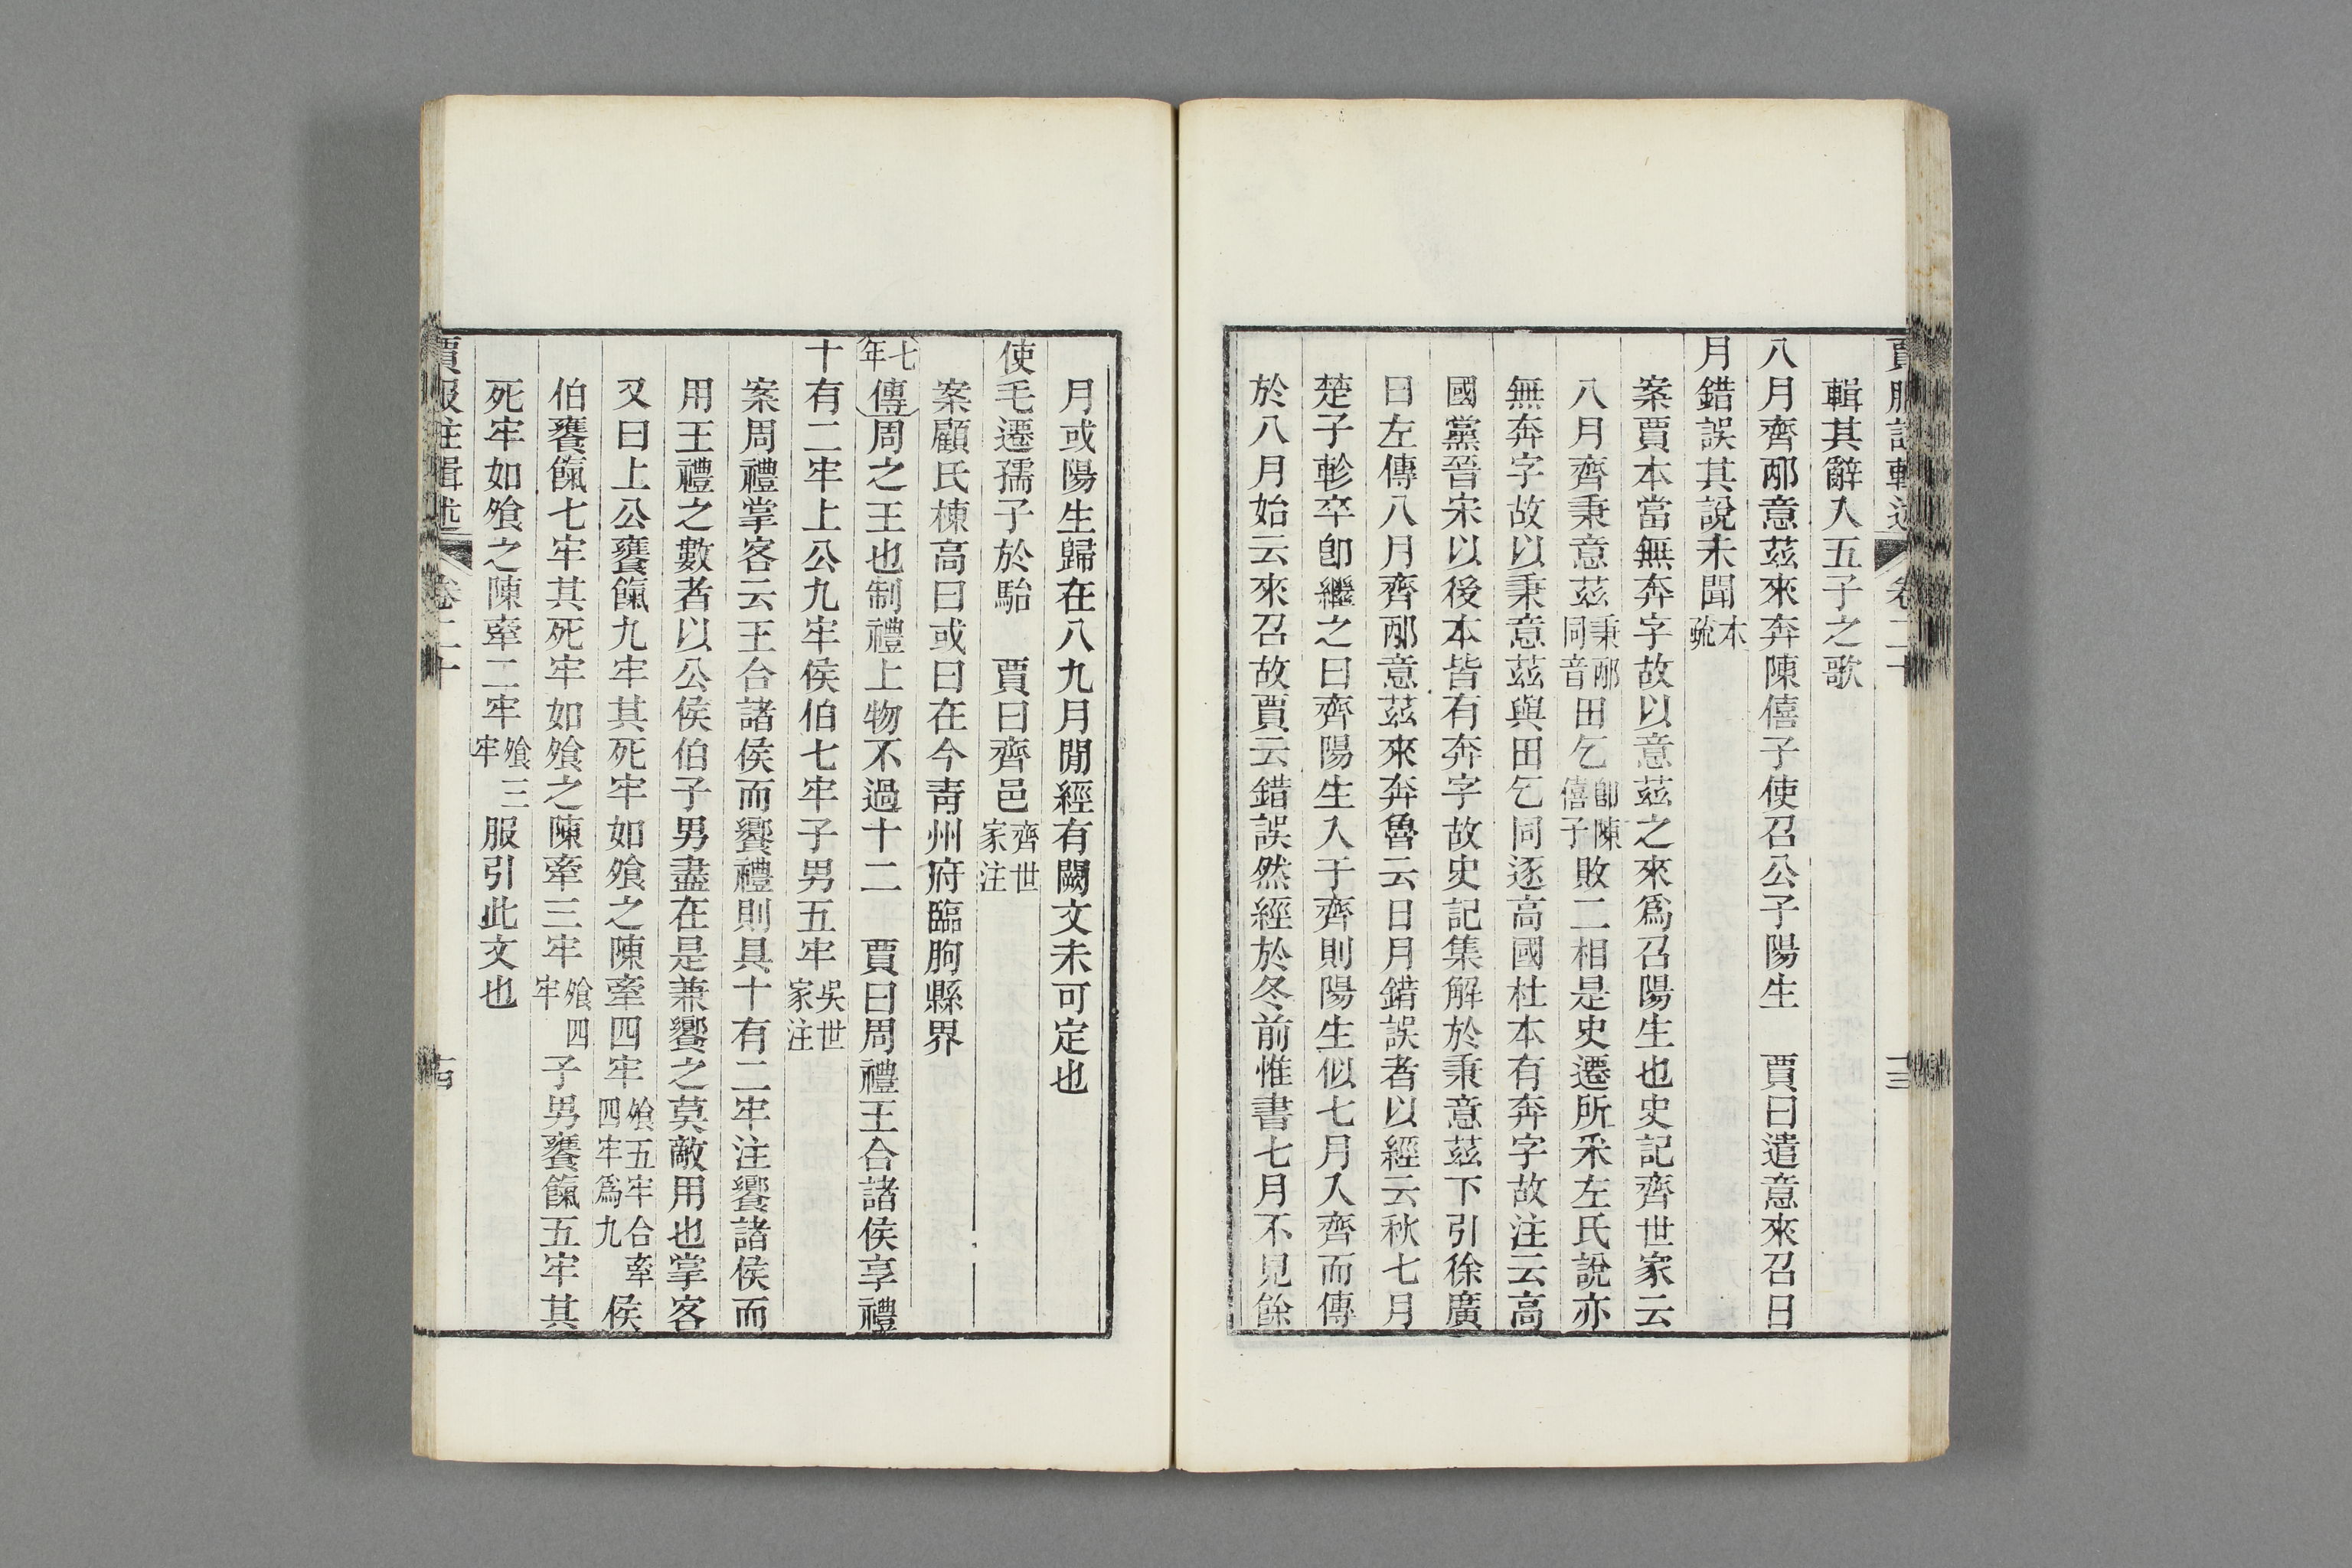 輯其辭入五子之歌
八月齊邴意茲來奔陳僖子使召公子陽生　賈曰遣意來召日
月錯誤其說未聞本疏
案賈本當無奔字故以意茲之來爲召陽生也史記齊世家云
八月齊秉意茲秉邴同音田乞卽陳僖子敗二相是史遷所釆左氏說亦
無奔字故以秉意茲與田乞同逐高國杜本有奔字故注云高
國黨晉宋以後本皆有奔字故史記集解於秉意茲下引徐廣
曰左傳八月齊邴意茲來奔魯云日月錯誤者以經云秋七月
楚子軫卒卽繼之曰齊陽生入于齊則陽生似七月入齊而傳
於八月始云來召故賈云錯誤然經於冬前惟書七月不見餘
月或陽生歸在八九月閒經有闕文未可定也
使毛遷孺子於駘　賈曰齊邑齊世家注
案顧氏棟高曰或曰在今靑州府臨朐縣界
七年傳周之王也制禮上物不過十二　賈曰周禮王合諸侯享禮
十有二牢上公九牢侯伯七牢子男五牢吳世家注
案周禮掌客云王合諸侯而饗禮則具十有二牢注饗諸侯而
用王禮之數者以公侯伯子男盡在是兼饗之莫敵用也掌客
又曰上公饔餼九牢其死牢如飧之陳牽四牢飧五牢合牽四牢爲九侯
伯饔餼七牢其死牢如飧之陳牽三牢飧四牢子男饔餼五牢其
死牢如飧之陳牽二牢飧三牢服引此文也
賈服注輯述　卷二十　十四